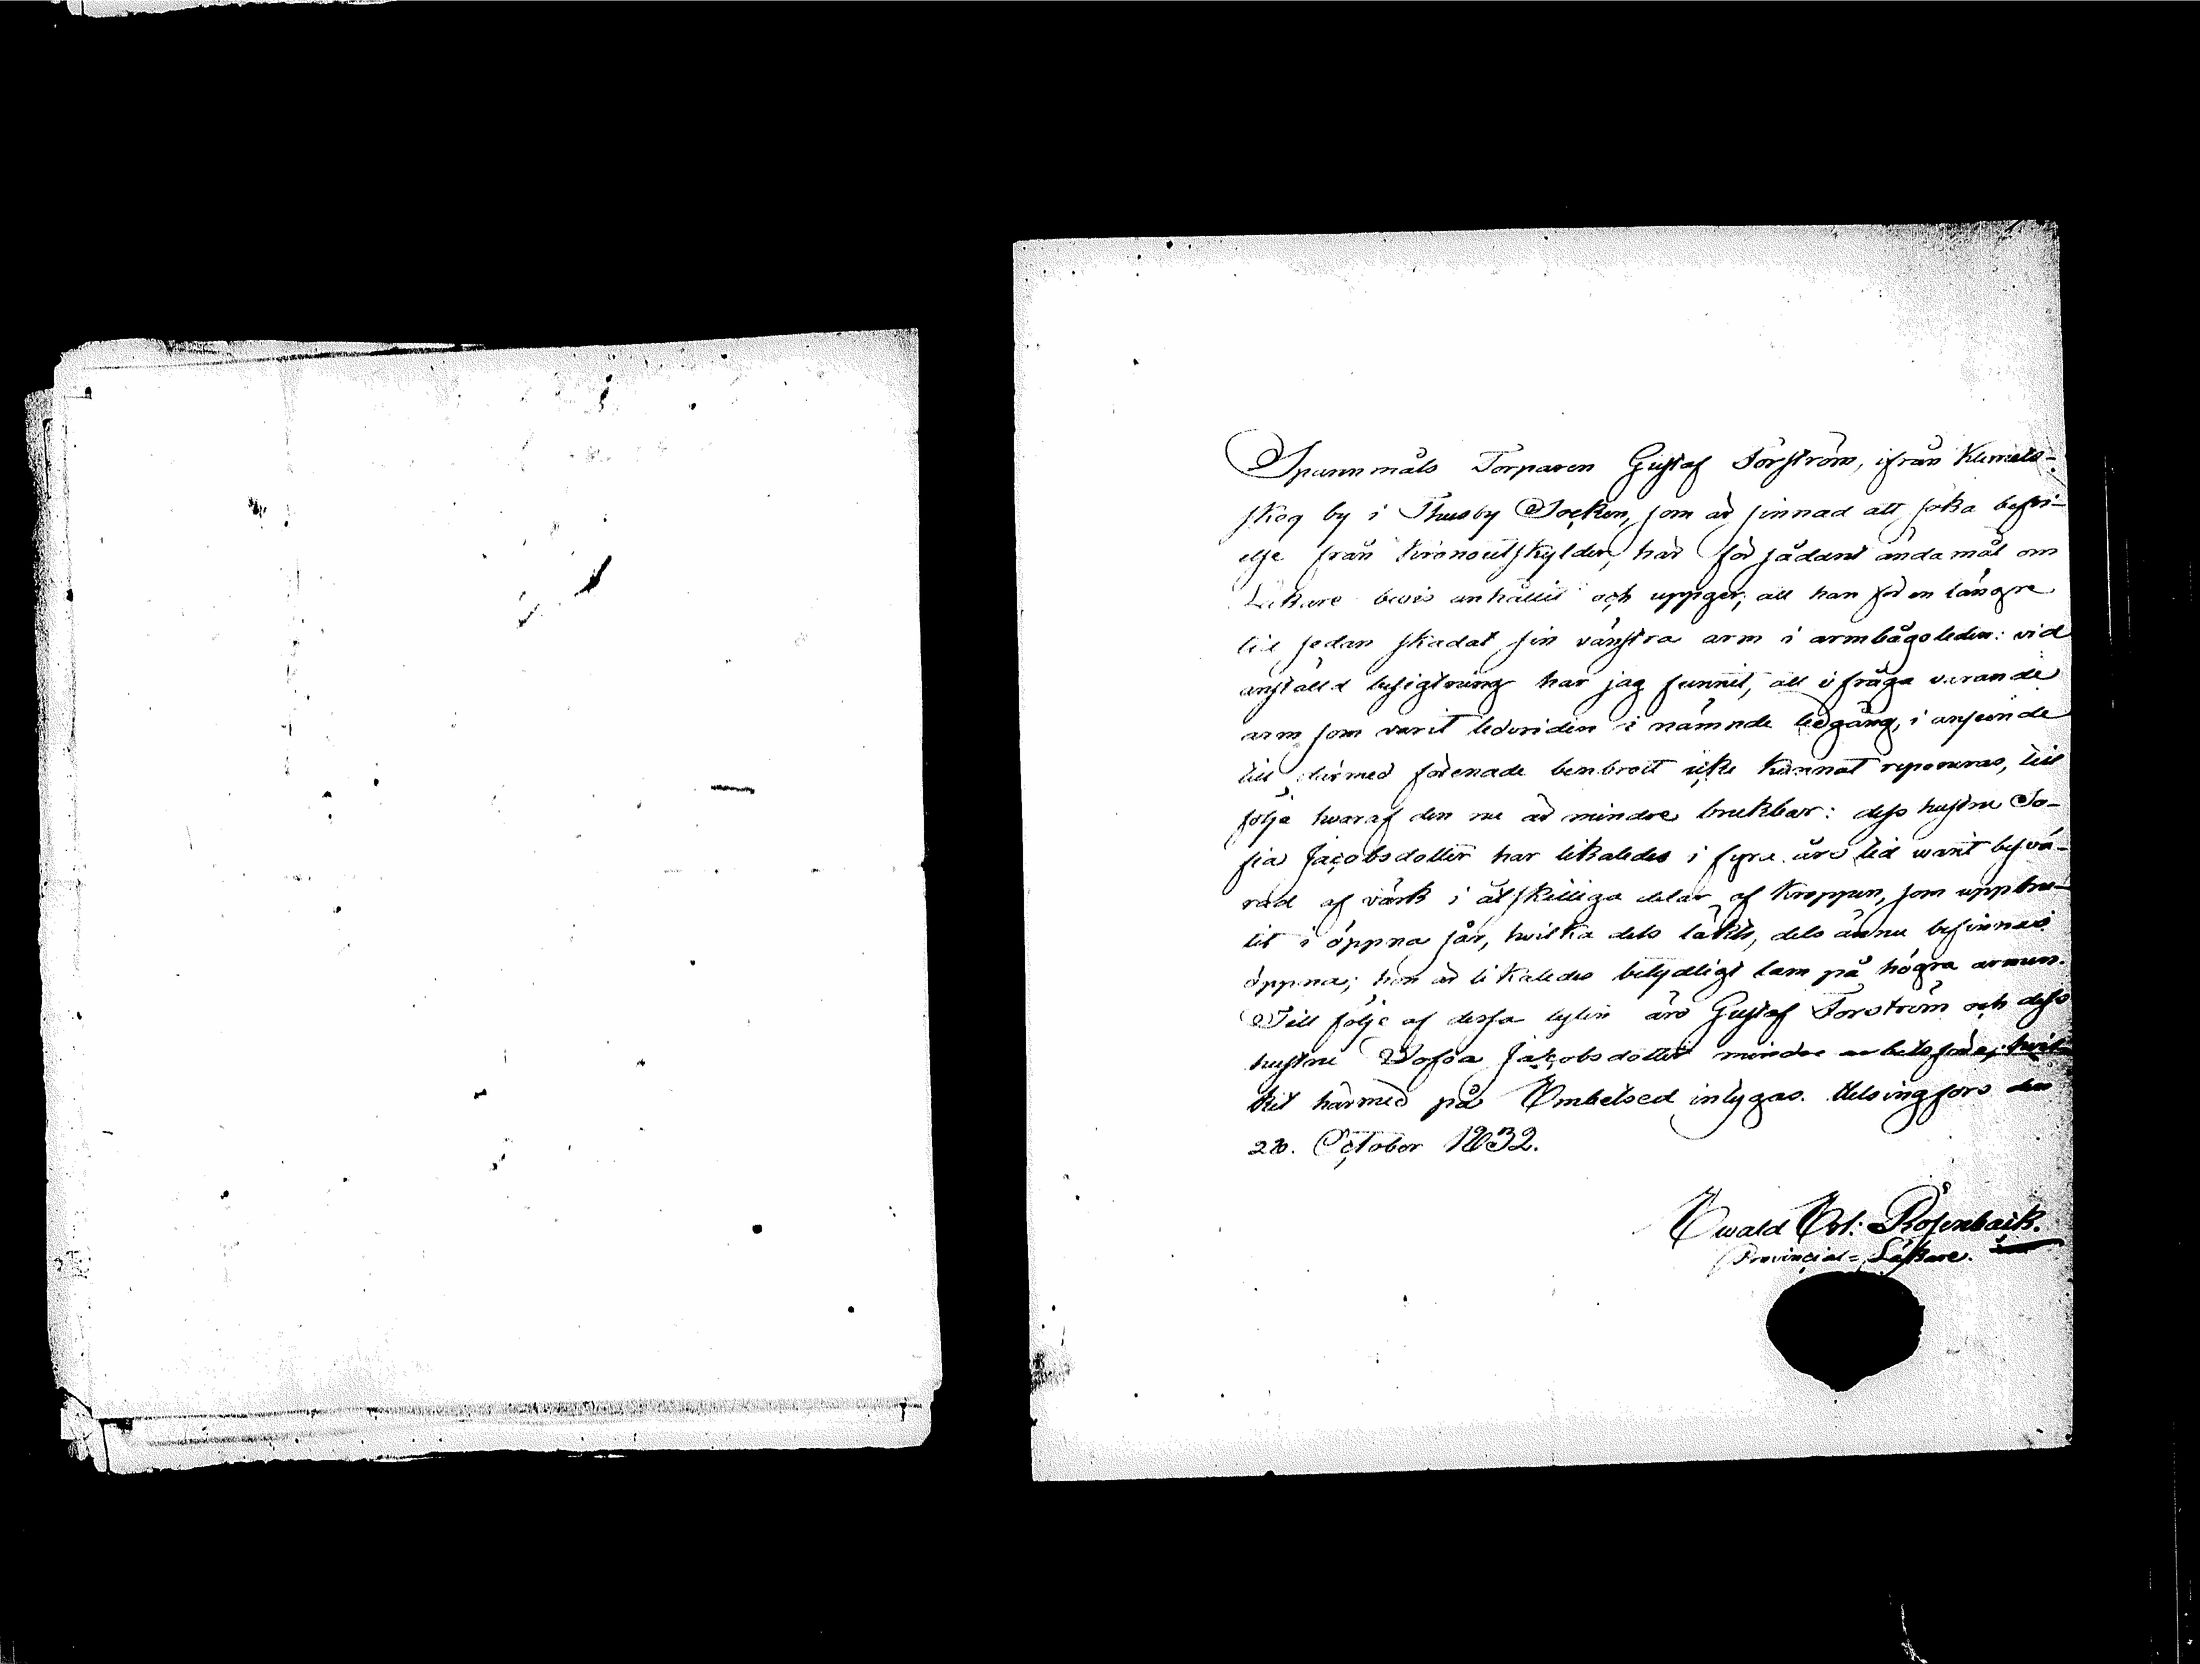 Spannmåls Torparen Gustaf Torström, ifrån Klemets-
skog by i Thusby Socken, som är sinnad att söka befri-
else från Kronoutskylder, har för sådant ändamål om
Läkare bevis anhållit och uppger, att han för en längre
tid sedan skadat sin vänstra arm i armbågsleden: vid
anställd besigtning har jag funnit, att ifråga varande
arm som varit ledvriden i nämnde ledgång, i anseende
till därmed förenade benbrott icke kunnat reponeras, till
följe hvaraf den nu är mindre brukbar: dess hustru So-
fia Jacobsdotter har likaledes i fyra års tid warit besvä-
rad af värk i åtskilliga delar af kroppen, som uppbru-
tit i öppna sår, hvilka dels läkts, dels ännu befinnas
öppna; hon är likaledes betydligt lam på högra armen.
Till följe af dessa lyten äro Gustaf Torström och dess
hustru Sofia Jacobsdotter mindre arbetsföra; hvil-
ket härmed på Embetsed intygas. Helsingfors den
October 1832.
Ewald Rosenback.
Provincial-Läkare.